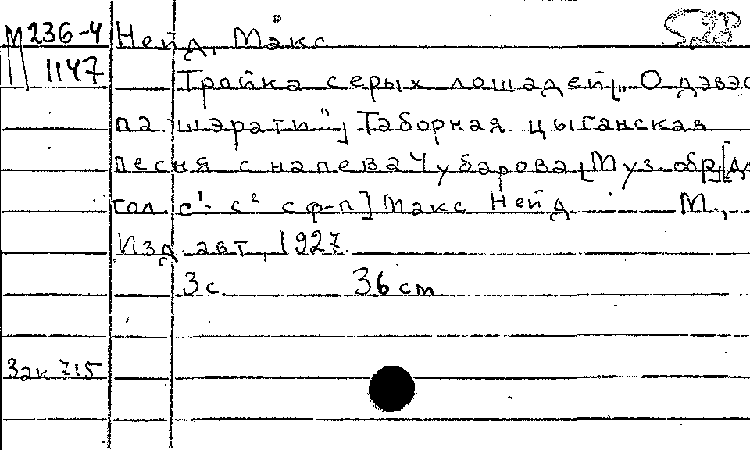 М 236-4 Нейд, Макс 528
1147 Тройка серых лошадей[„О дэвэс
па шэрати"] Таборная цыганская
песня с напева Чубарова [Муз. обр] [дл
гол. c¹- c² с ф-п] Макс Нейд М,
Изд. авт, 1927.
3 с. 36 cm
Зак 715